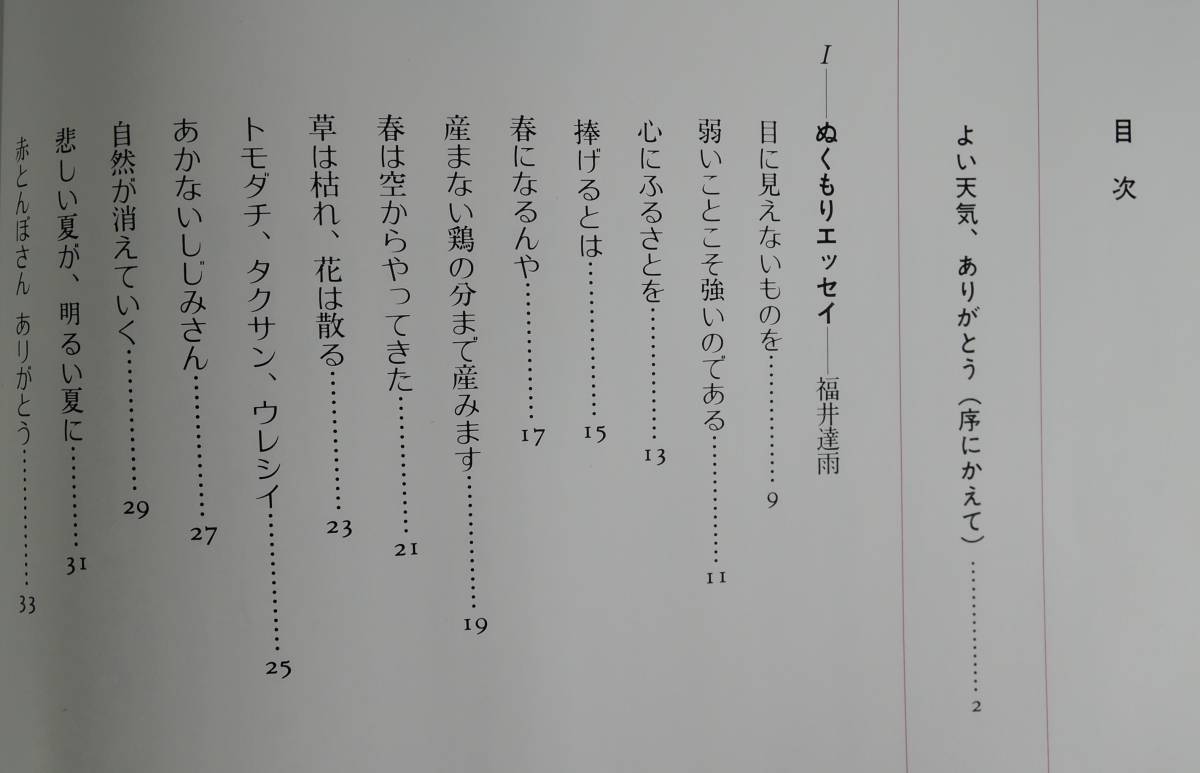 目次
よい天気、ありがとう(序にかえて)………………2
I——ぬくもりエッセイ——福井達雨
目に見えないものを………………9
弱いことこそ強いのである………………11
心にふるさとを………………13
捧げるとは………………15
春になるんや………………17
産まない鶏の分まで産みます………………19
春は空からやってきた………………21
草は枯れ、花は散る………………23
トモダチ、タクサン、ウレシイ………………25
あかないしじみさん………………27
自然が消えていく………………29
悲しい夏が、明るい夏に…………31
赤とんぼさん ありがとう………………33